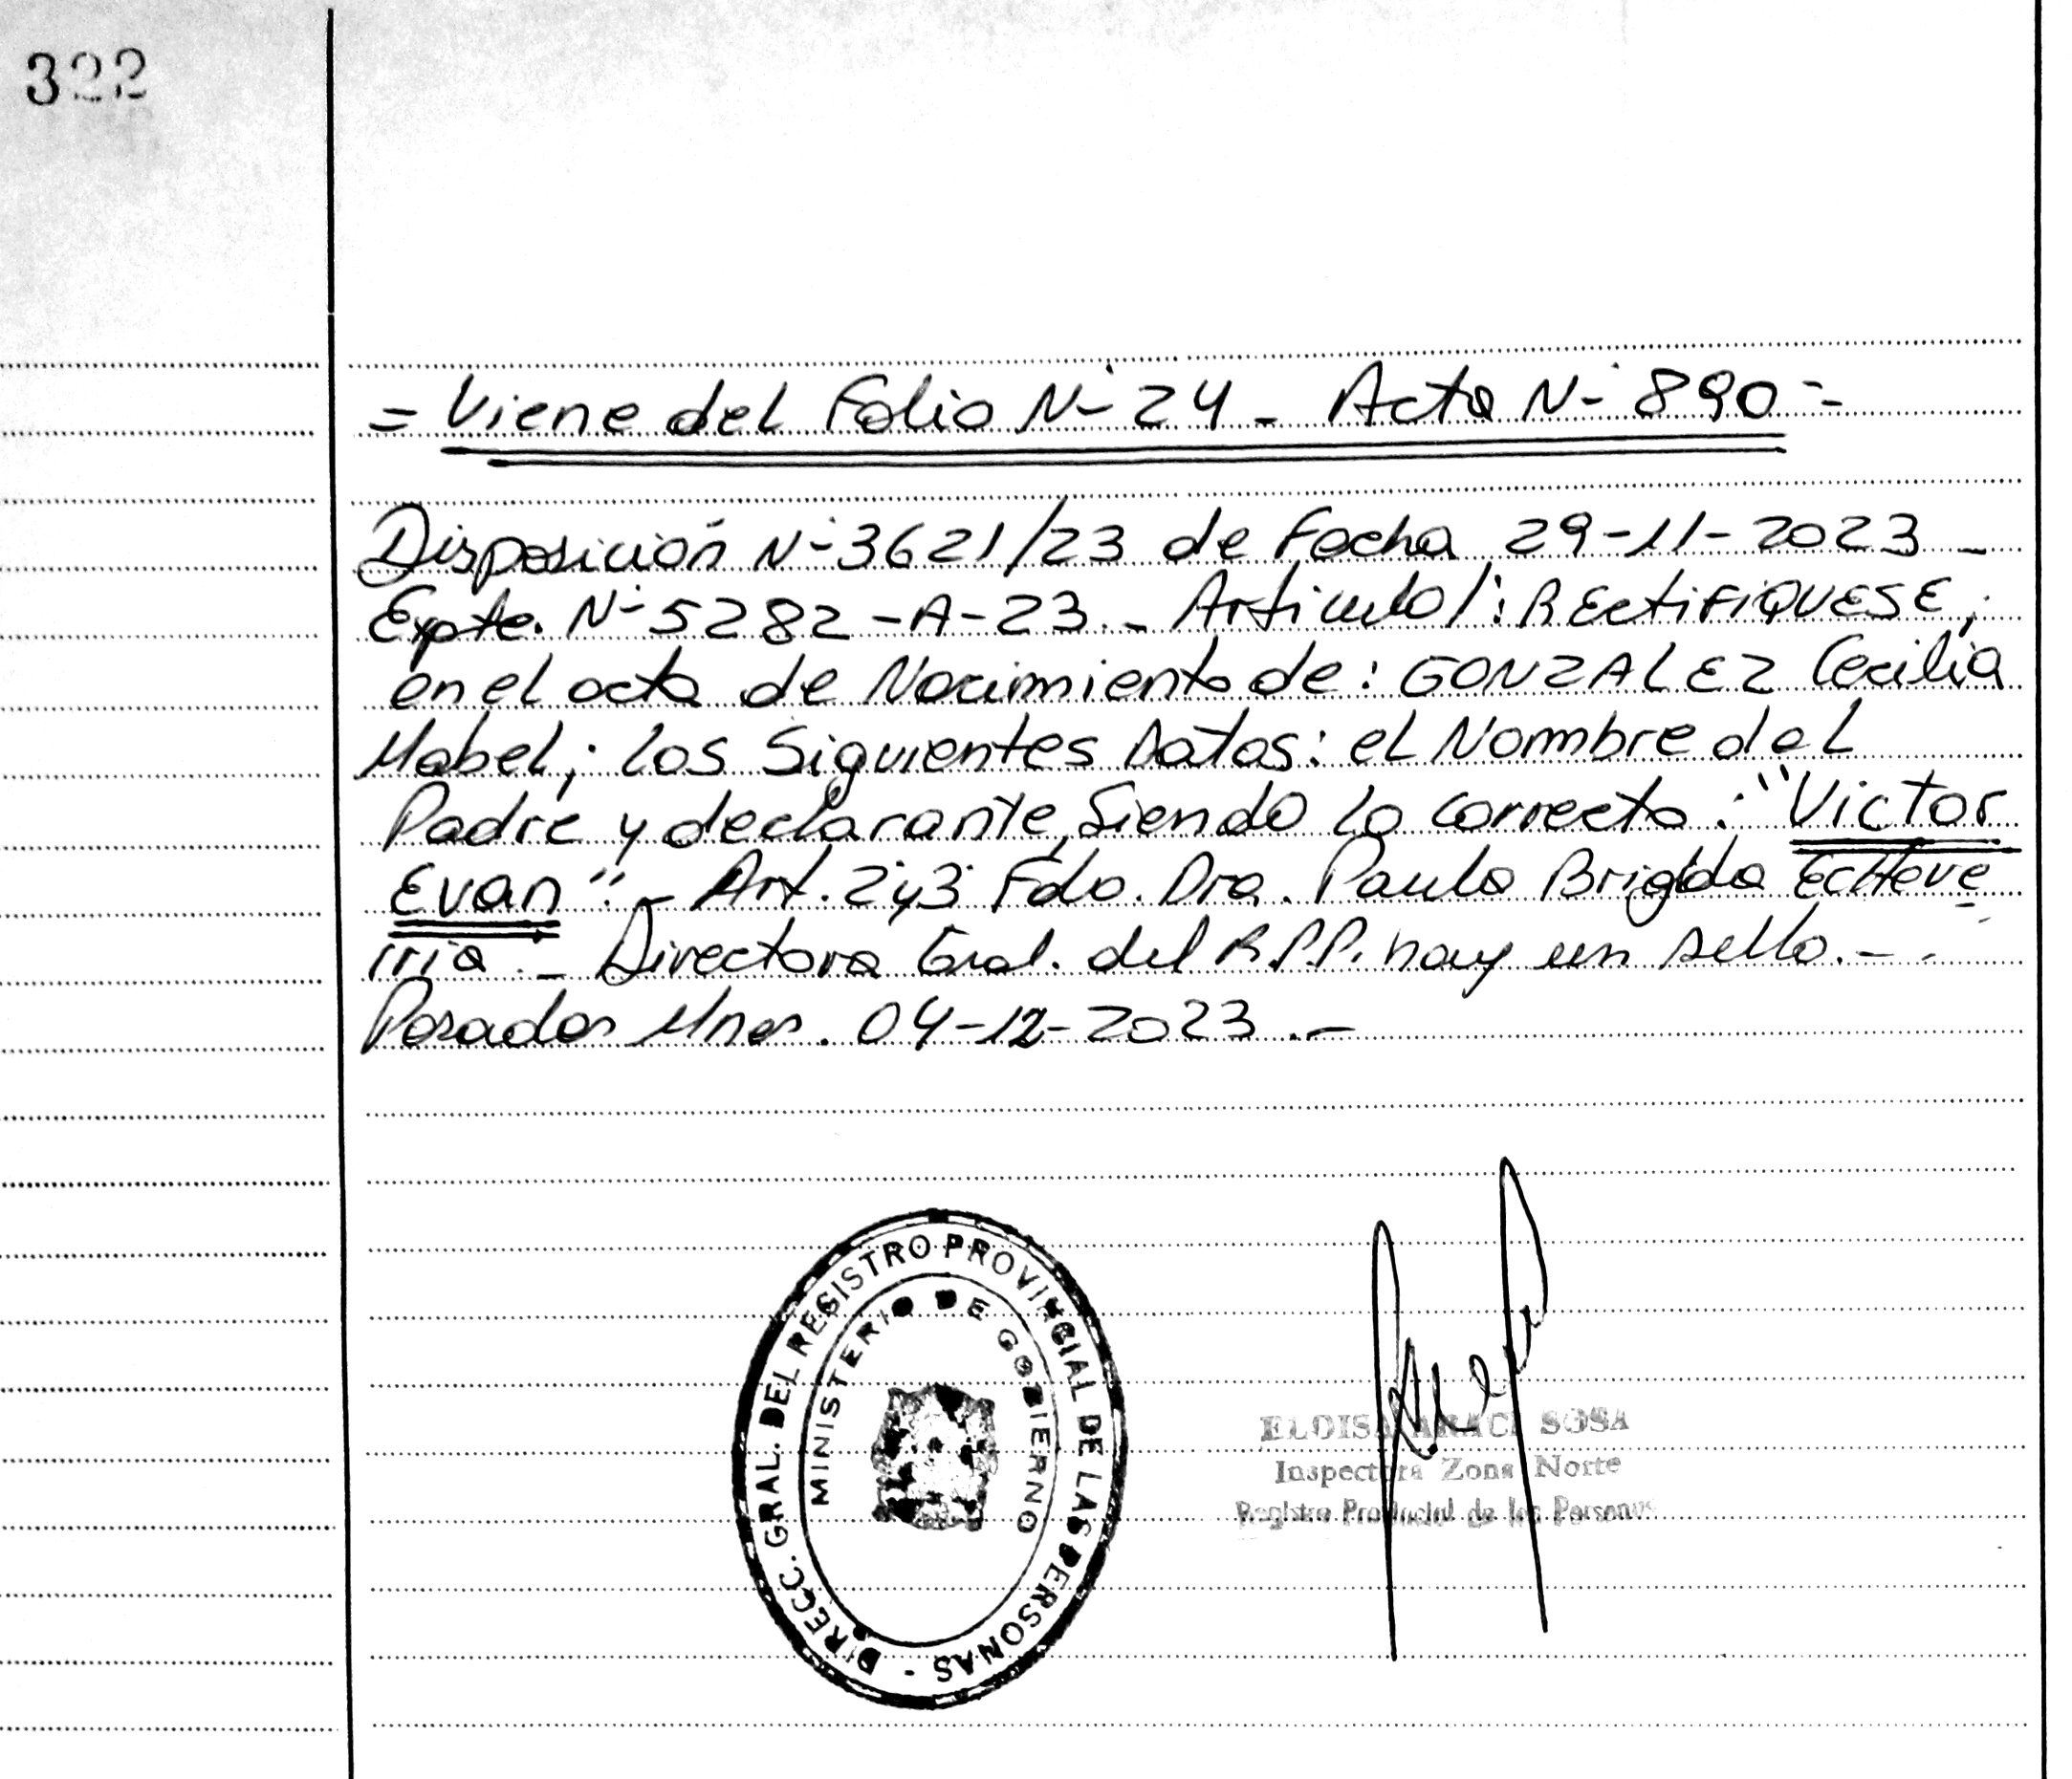 322
= Viene del Folio N- 24 - Acta N- 890 -
Disposición N- 3621/23 de Fecha 29-11-2023 -
Expte. N- 5282 - A - 23. - Articulo 1: RECtiFIQUESE,
en el acta de Nacimiento de: GONZALEZ Cecilia
Mabel; los Siguientes Datos: el Nombre del
Padre y declarante, Siendo lo correcto: "Victor
Evan". - Art. 2 y 3 Fdo. Dra. Paula Brigida Echeve
rria - Directora Gral. del R.P.P. hay un sello. - .
Posadas Mnes. 04-12-2023. -
DIRECC. GRAL. DEL REGISTRO PROVINCIAL DE LAS PERSONAS -
MINISTERIO DE GOBIERNO
ELOISA ARACI SOSA
Inspectora Zona Norte
Registro Provincial de las Personas